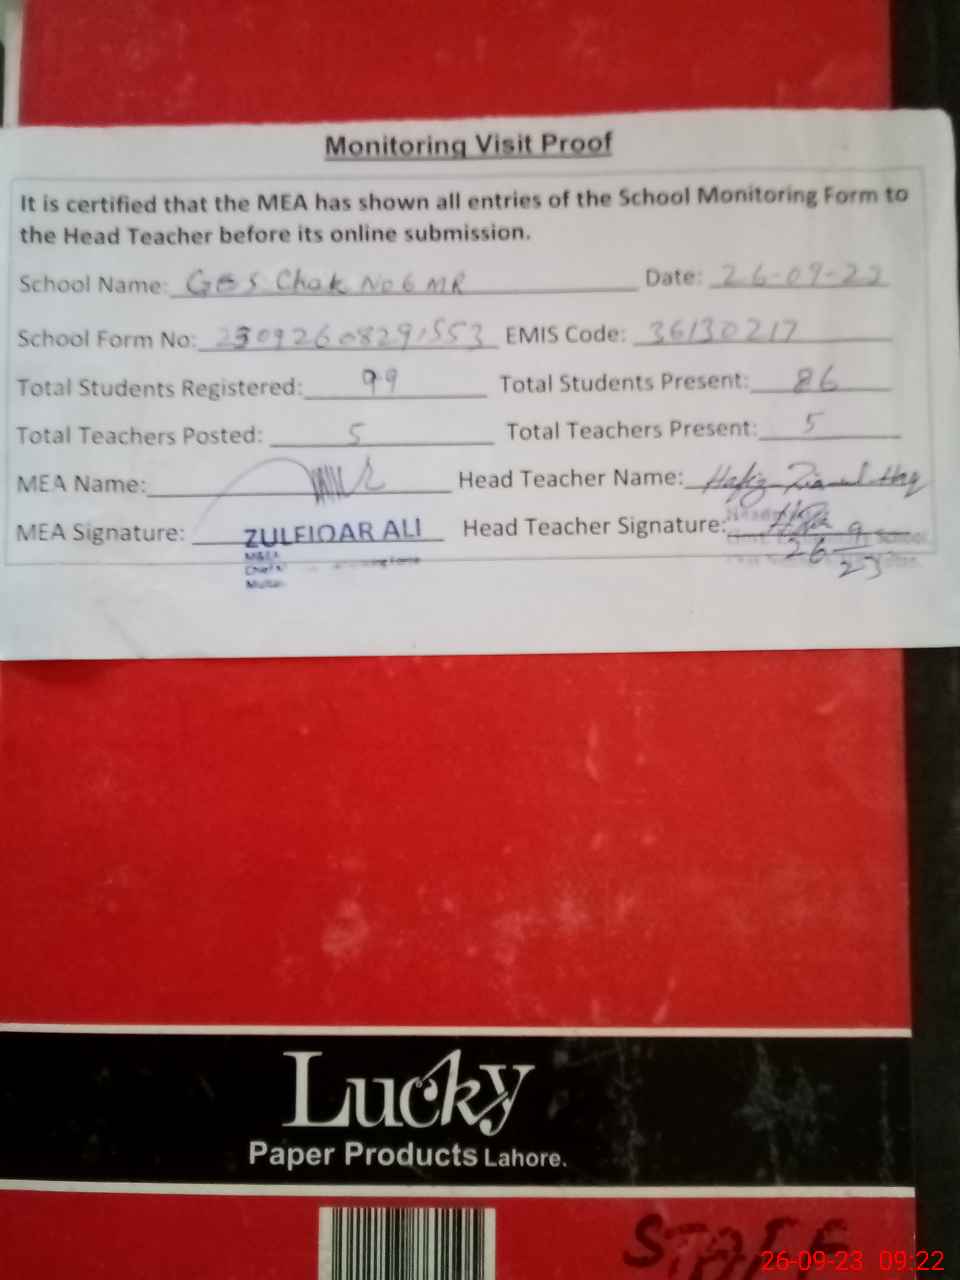 Monitoring Visit Proof
It is certified that the MEA has shown all entries of the School Monitoring Form to
the Head Teacher before its online submission.
School Name: GES Chak No 6 MR Date: 26-09-23
School Form No: 23092608291553 EMIS Code: 36130217
Total Students Registered: 99 Total Students Present: 86
Total Teachers Posted: 5 Total Teachers Present: 5
MEA Name: Head Teacher Name: Hafiz Zia ul Haq
MEA Signature: ZULFIQAR ALI Head Teacher Signature:
M&EA School
26 9
23
Lucky
Paper Products Lahore.
STAFF
26-09-23 09:22